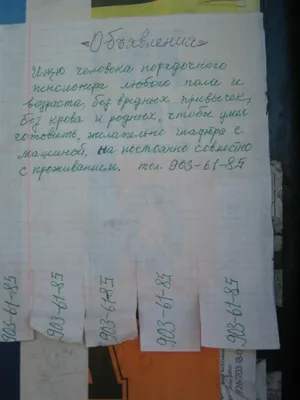 «Объявления»
Ищю человека порядочного
пенсионера любого пола и
возраста, без вредных привычек,
без крова и родных, чтобы умел
готовить, желательно шафёра с
машиной, на постоянно совместно
с проживанием. тел. 903-61-85
903-61-85
903-61-85
903-61-85
903-61-85
903-61-85